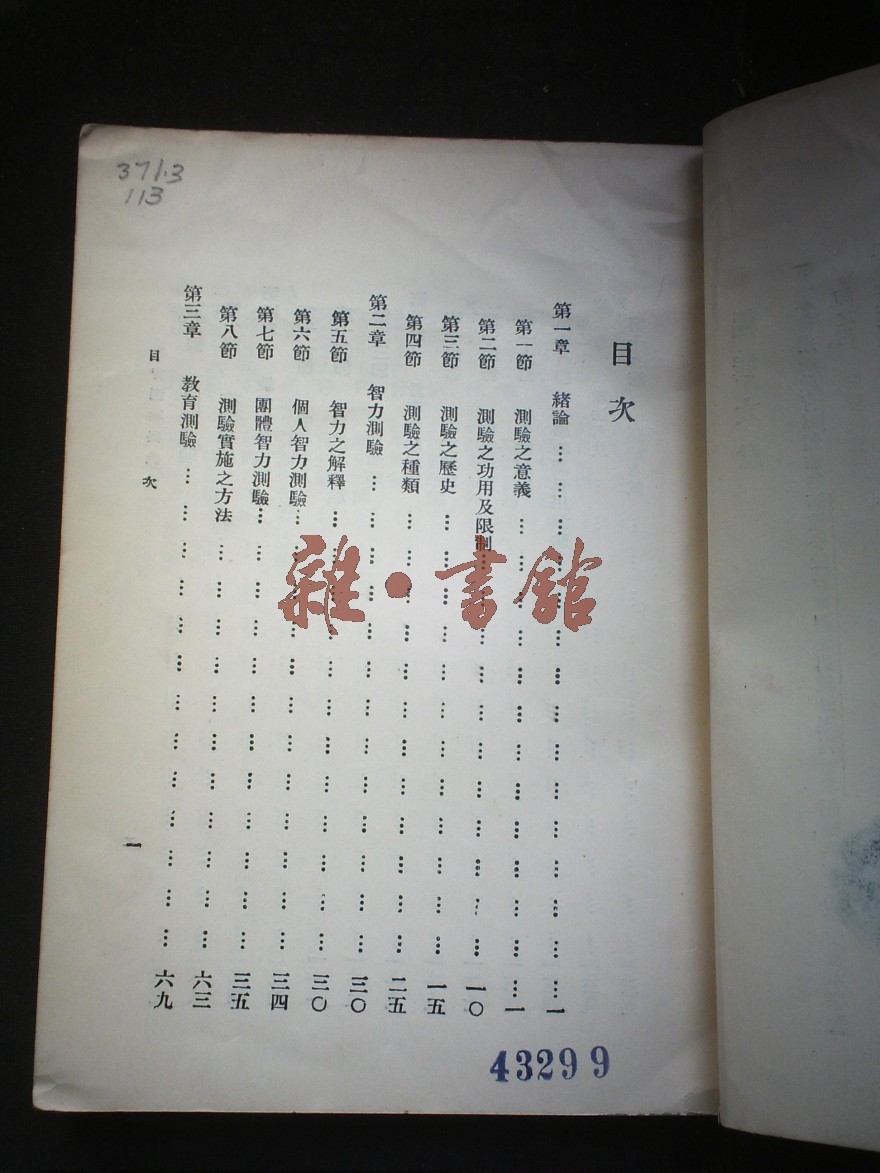 371.3
113
目次
第一章 緒論……………一
第一節 測驗之意義……………一
第二節 測驗之功用及限制……………一〇
第三節 測驗之歷史……………一五
第四節 測驗之種類……………二五
第二章 智力測驗……………三〇
第五節 智力之解釋……………三〇
第六節 個人智力測驗……………三四
第七節 團體智力測驗……………三五
第八節 測驗實施之方法……………六三
第三章 教育測驗……………六九
目次
一
43299
雜·書館